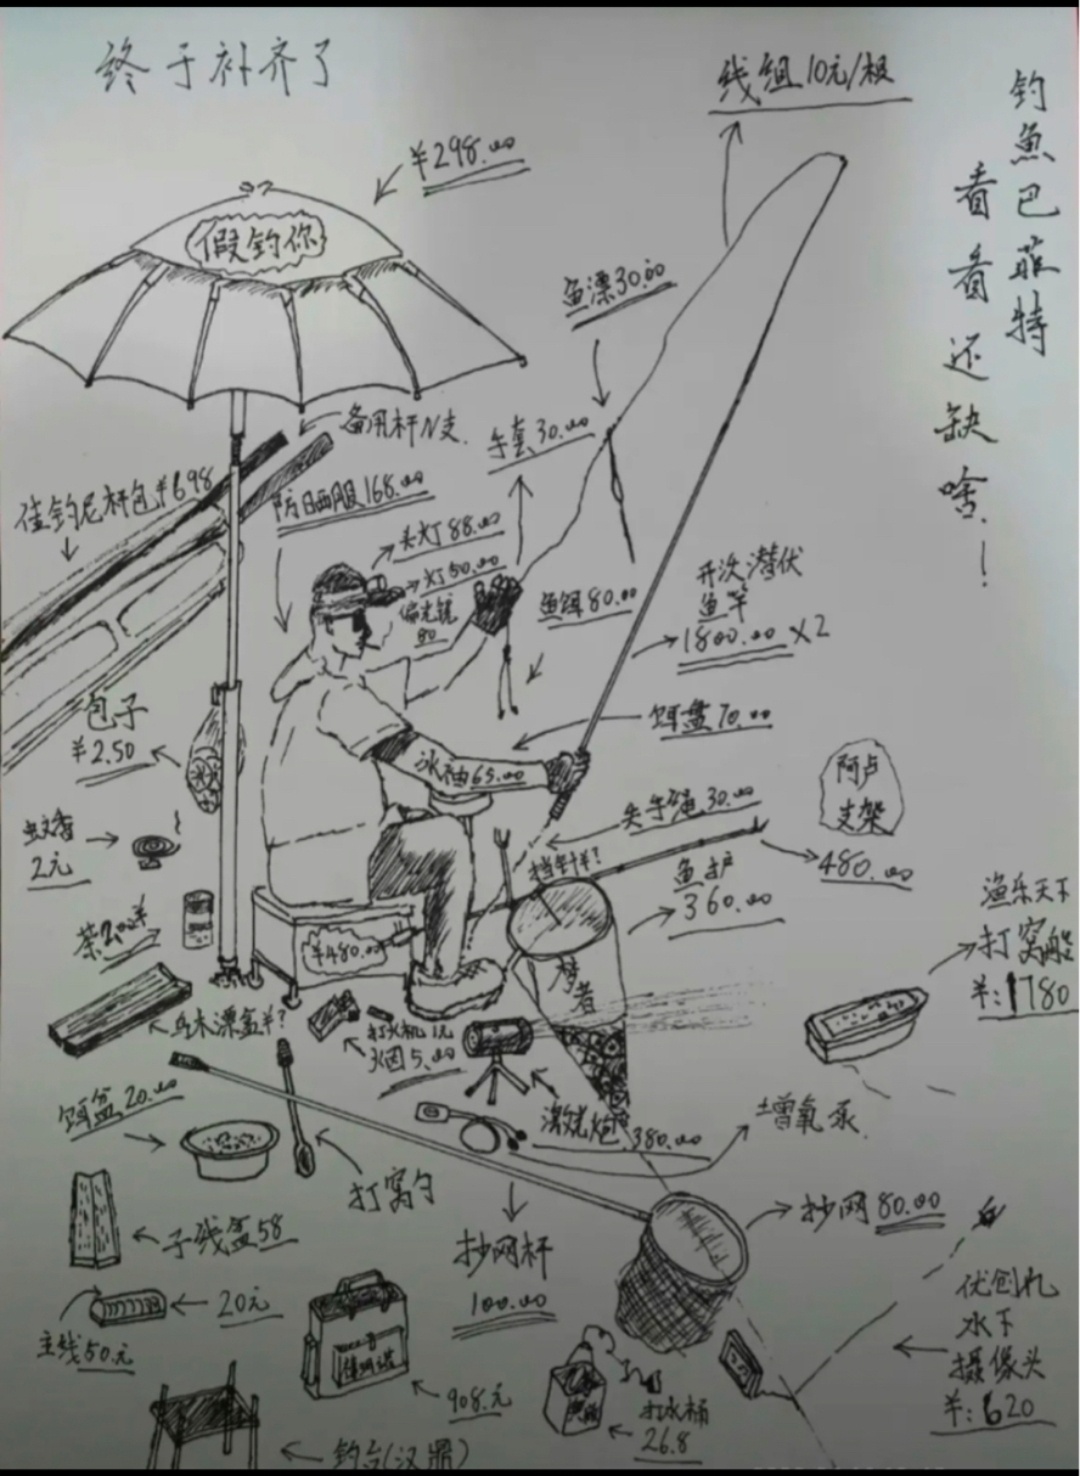 终于补齐了
钓鱼巴菲特
看看还缺啥！
线组10元/根
¥298.00
假钓你
鱼漂30.00
备用杆N支.
手套30.00
佳钓尼杆包¥698
防日晒服168.00
头灯88.00
灯50.00
偏光镜
80
鱼饵80.00
开次潜伏
鱼竿
1800.00 X2
包子
¥2.50
饵盘70.00
冰袖65.00
阿卢
支架
480.00
失手绳30.00
蚊香
2元
挡针¥?
鱼护
360.00
茶2.00
¥480.00
梦者
渔乐天下
打窝船
¥:1780
乌木漂盒¥?
打火机1元
火因5.00
激光炮380.00
增氧泵
饵盆20.00
打窝勺
子线盒58
抄网杆
100.00
抄网80.00
20元
主线50元
908.元
优创礼
水下
摄像头
¥:620
打水桶
26.8
钓台(汉鼎)